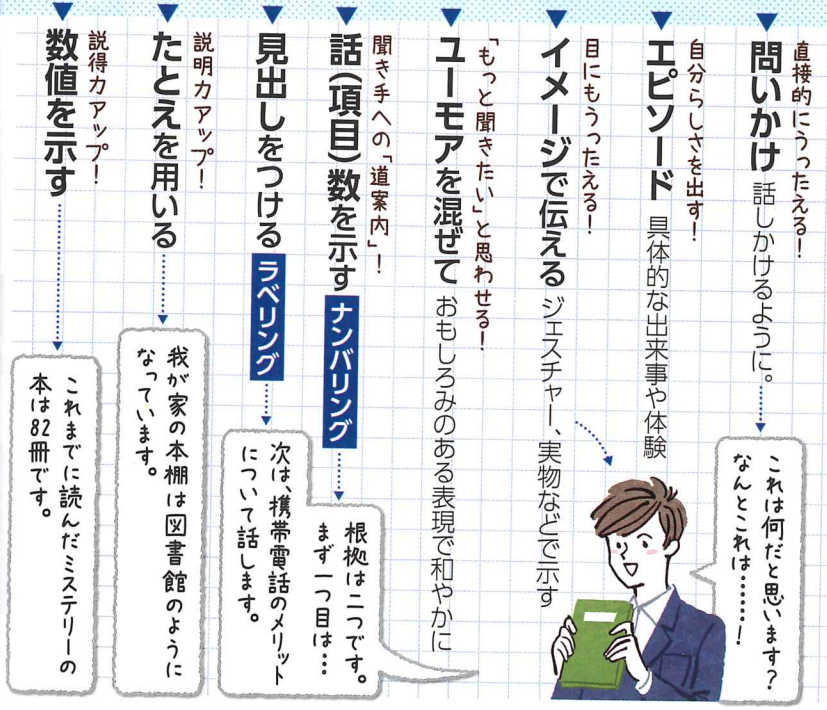 直接的にうったえる!
問いかけ 話しかけるように。
これは何だと思います?
なんとこれは……!
自分らしさを出す!
エピソード 具体的な出来事や体験
目にもうったえる!
イメージで伝える ジェスチャー、実物などで示す
「もっと聞きたい」と思わせる!
ユーモアを混ぜて おもしろみのある表現で和やかに
聞き手への「道案内」!
話(項目)数を示す ナンバリング
根拠は二つです。
まず一つ目は…
見出しをつける ラベリング
次は、携帯電話のメリット
について話します。
説明力アップ!
たとえを用いる
我が家の本棚は図書館のように
なっています。
説得力アップ!
数値を示す
これまでに読んだミステリーの
本は82冊です。